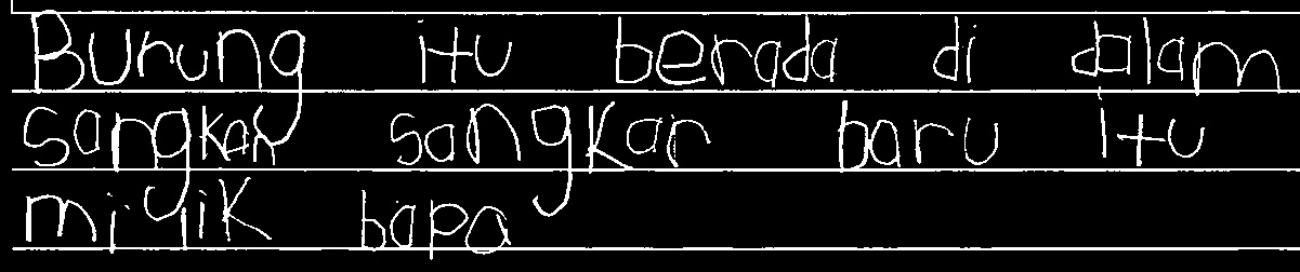 Burung itu berada di dalam
sangkar sangkar baru itu
milik bapa